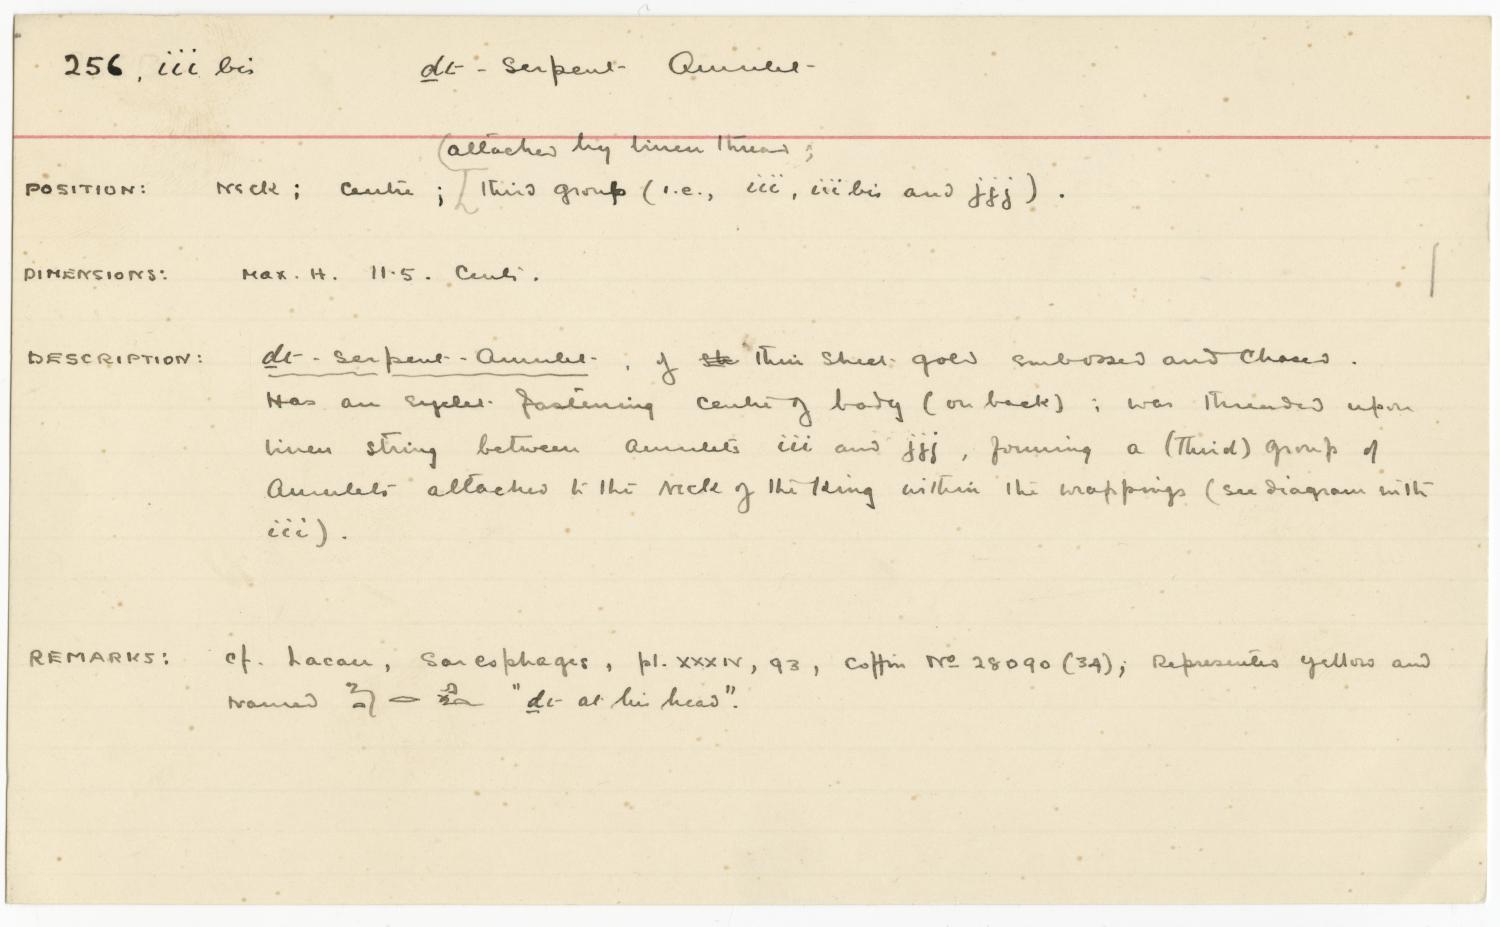 256, iii bis ḏt - Serpent - Amulet -
(attached by linen thread;
POSITION: Neck; Centre; [third group (i.e., iii, iii bis and jjj).
DIMENSIONS: Max. H. 11·5. Cents.
DESCRIPTION: ḏt - Serpent - Amulet -, of thin sheet gold embossed and chased.
Has an eyelet fastening centre of body (on back); was threaded upon
linen string between amulets iii and jjj, forming a (third) group of
Amulets attached to the Neck of the King within the wrappings (see diagram with
iii).
REMARKS: cf. Lacau, Sarcophages, pl. XXXIV, 93, Coffin Nº 28090 (34); Represented yellow and
named "ḏt at his head".